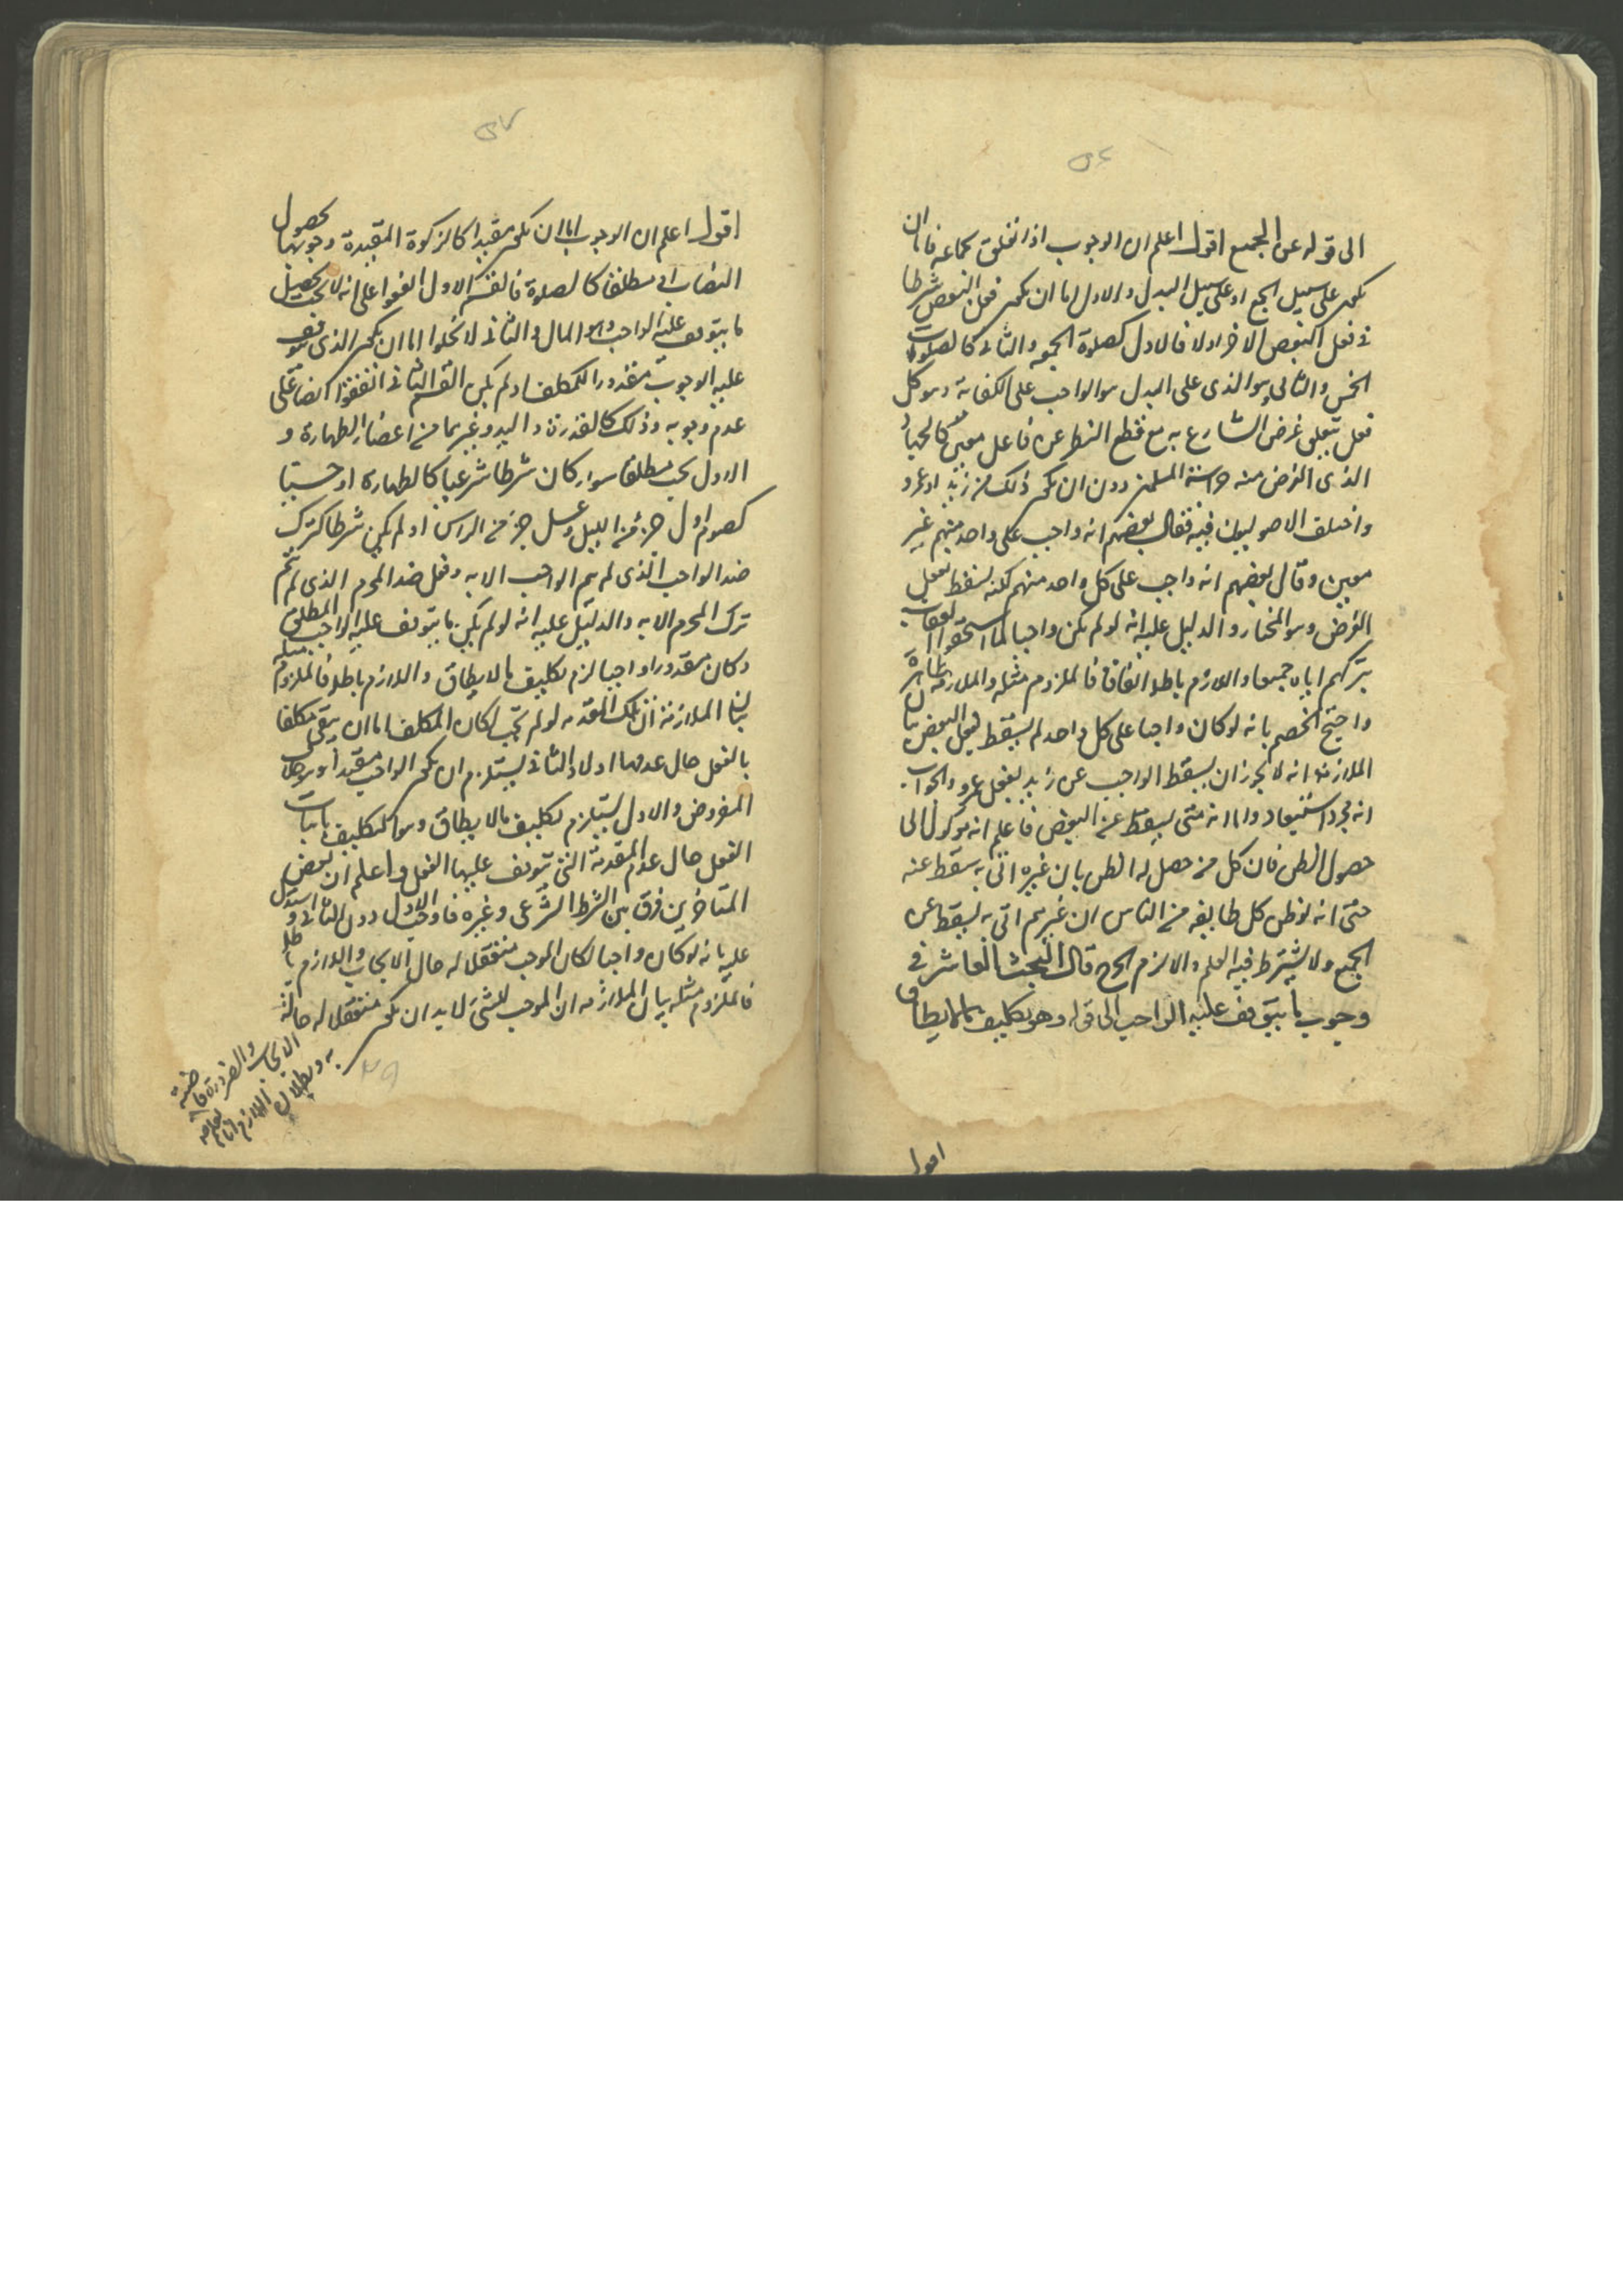 الى قوله عن الجميع اقول اعلم ان الوجوب اذا تعلق بجماعة فاما ان
يكون على سبيل الجمع او على سبيل البدل والاول اما ان يكون فعل البعض شرطا
في فعل البعض الاخر او لا فالاول كصلوة الجمعة والثاني كالصلوات
الخمس والثاني وهو الذي على البدل هو الواجب على الكفاية وهو كل
فعل تعلق غرض الشارع به مع قطع النظر عن فاعل معين كالجهاد
الذي الغرض منه حراسة المسلمين دون ان يكون ذلك من زيد او عمرو
واختلف الاصوليون فيه فقال بعضهم انه واجب على واحد منهم غير
معين وقال بعضهم انه واجب على كل واحد منهم لكنه يسقط بفعل
البعض وهو المختار والدليل عليه انه لو لم يكن واجبا لما استحقوا العقاب
بتركهم اياه جميعا واللازم باطل اتفاقا فالملزوم مثله والملازمة ظاهرة
واحتج الخصم بانه لو كان واجبا على كل واحد لم يسقط بفعل البعض بيان
الملازمة انه لا يجوز ان يسقط الواجب عن زيد بفعل عمرو والجواب
انه مجرد استبعاد واما انه متى يسقط عن البعض فاعلم انه موكول الى
حصول الظن فان كل من حصل له الظن بان غيره اتى به سقط عنه
حتى انه لو ظن كل طايفة من الناس ان غيرهم اتى به يسقط عن
الجميع ولا يشترط فيه العلم والا لزم الحرج قال البحث العاشر في
وجوب ما يتوقف عليه الواجب الى قوله وهو تكليف بما لا يطاق
اقول
اقول اعلم ان الوجوب اما ان يكون مقيدا كالزكوة المقيدة وجوبها بحصول
النصاب او مطلقا كالصلوة فالقسم الاول اتفقوا على انه لا يجب تحصيل
ما يتوقف عليه الواجب وهو المال والثاني لا يخلوا اما ان يكون الذي يتوقف
عليه الوجوب مقدورا للمكلف او لم يكن القسم الثاني اتفقوا ايضا على
عدم وجوبه وذلك كالقدرة واليد وغيرهما من اعضاء الطهارة و
الاول يجب مطلقا سواء كان شرطا شرعيا كالطهارة او حسيا
كصوم اول جزء من الليل وغسل جزء من الراس او لم يكن شرطا كترك
ضد الواجب الذي لم يتم الواجب الا به وفعل ضد المحرم الذي لم يتم
ترك المحرم الا به والدليل عليه انه لو لم يكن ما يتوقف عليه الواجب المطلق
وكان مقدورا واجبا لزم تكليف ما لا يطاق واللازم باطل فالملزوم مثله
بيان الملازمة ان تلك المقدمة لو لم تجب لكان المكلف اما ان يبقى مكلفا
بالفعل حال عدمها او لا والثاني يستلزم ان يكون الواجب مقيدا وهو خلاف
المفروض والاول يستلزم تكليف ما لا يطاق وهو التكليف باتيان
الفعل حال عدم المقدمة التي يتوقف عليها الفعل واعلم ان بعض
المتاخرين فرق بين الشرط الشرعي وغيره فاوجب الاول دون الثاني واستدل
عليه بانه لو كان واجبا لكان الموجب متعقلا له حال الايجاب واللازم باطل
فالملزوم مثله بيان الملازمة ان الموجب للشئ لا بد ان يكون متعقلا له حالة
الايجاب والضرورة قاضية
به وبطلان اللازم